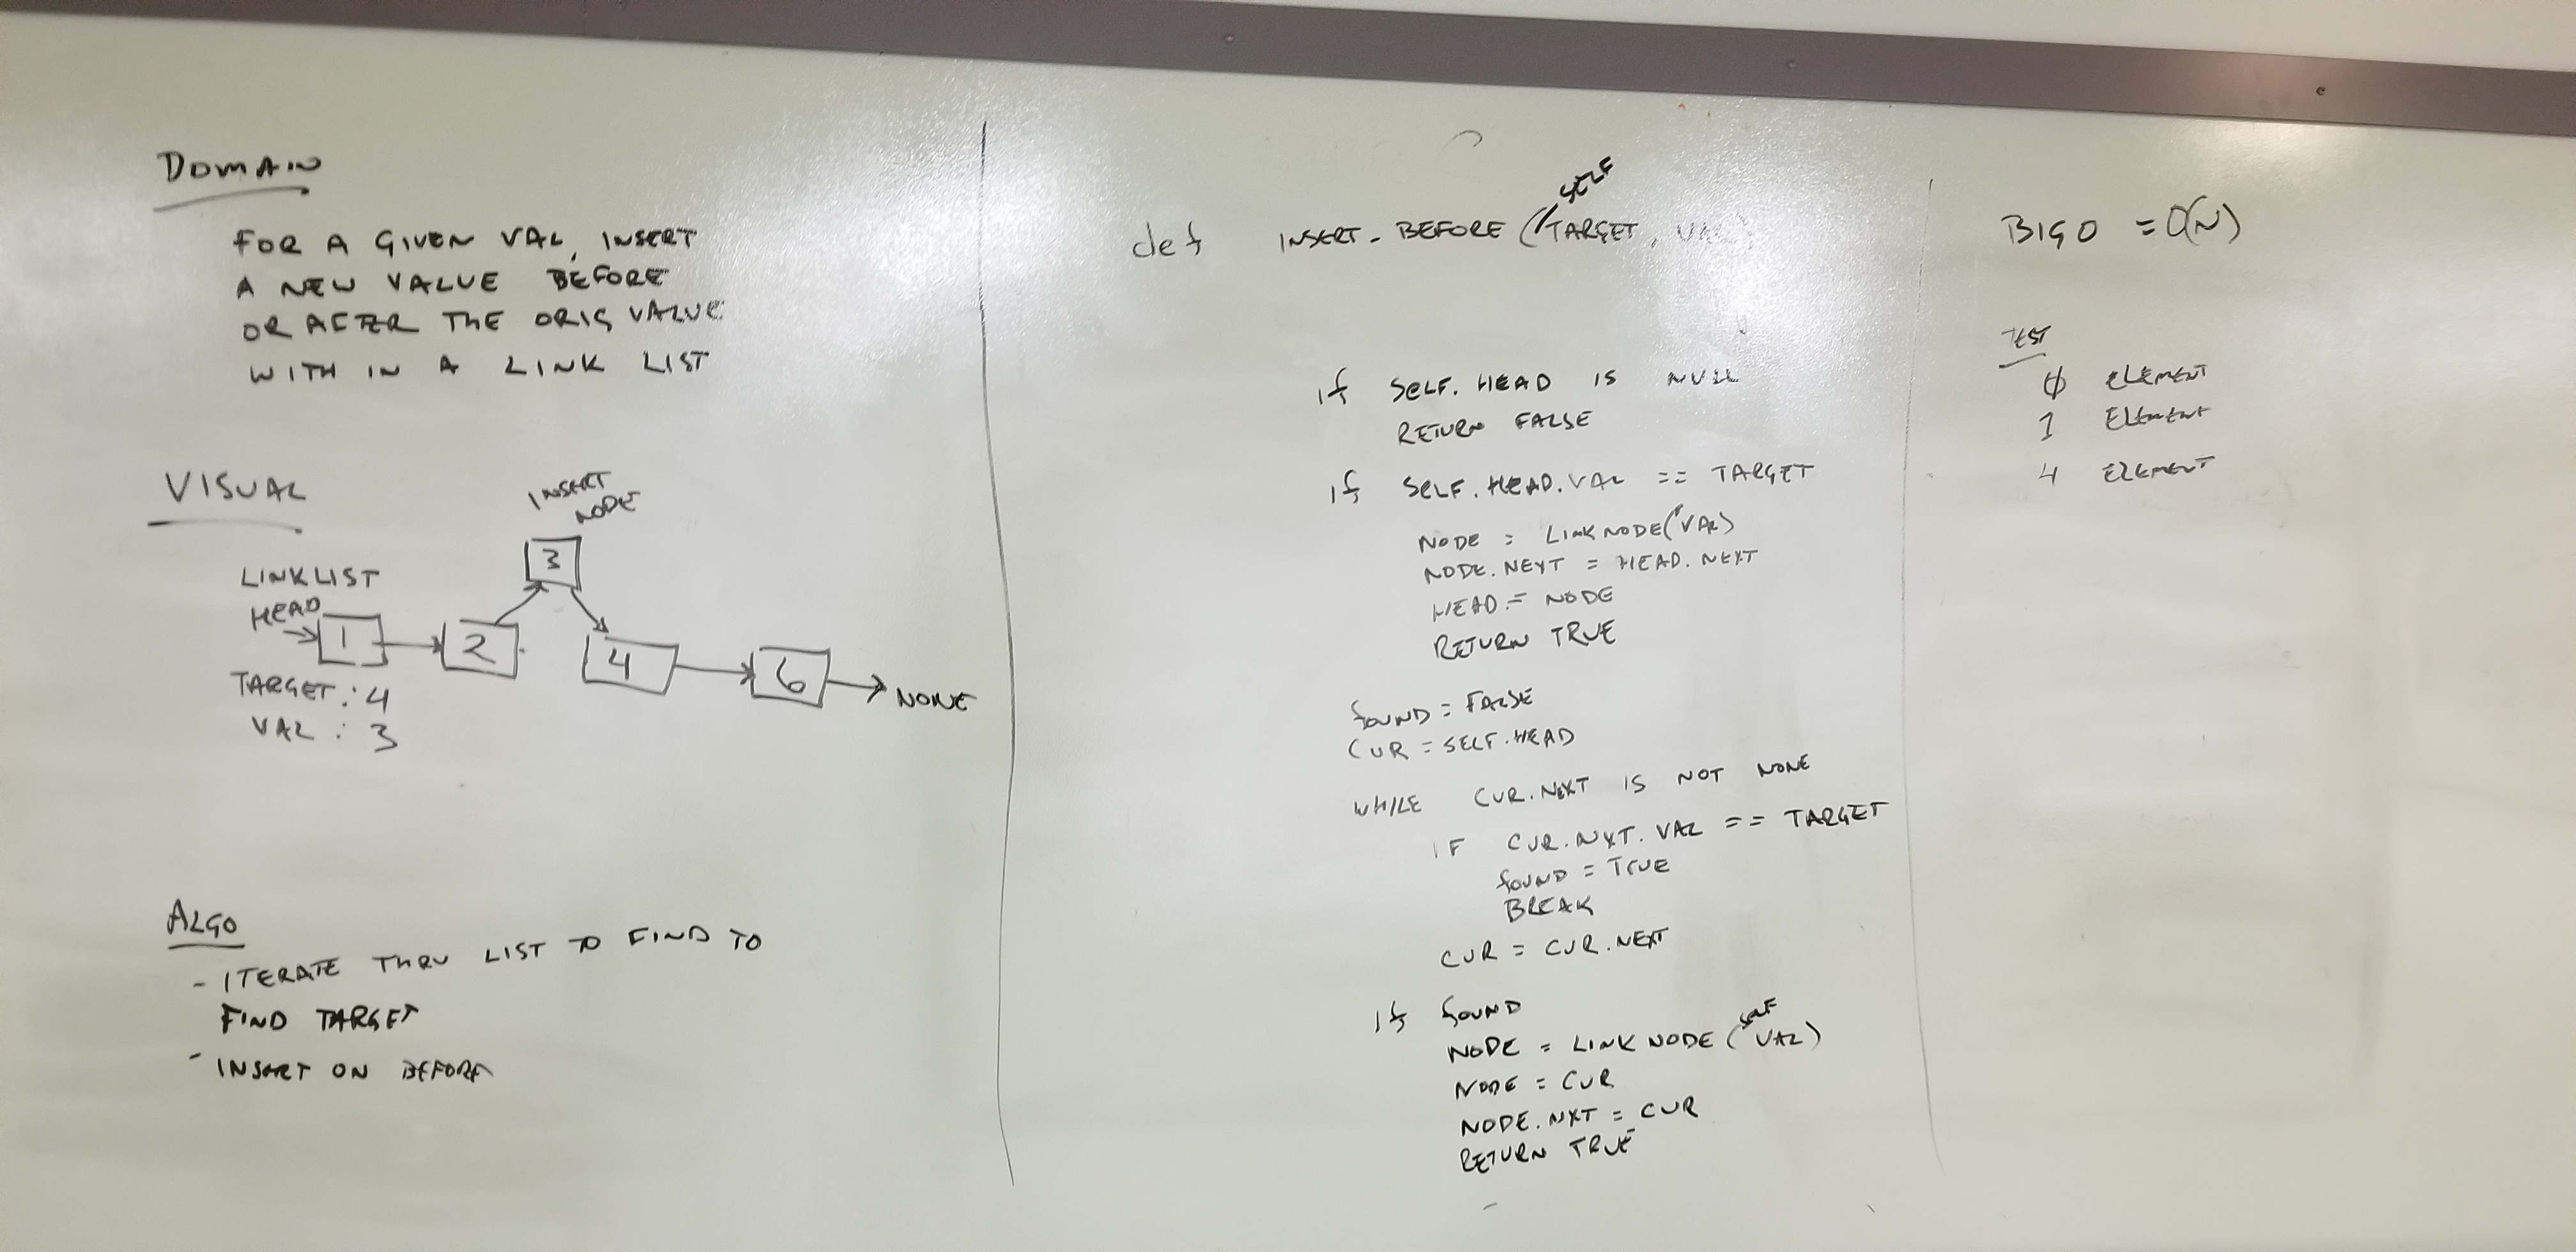 DOMAIN
FOR A GIVEN VAL, INSERT
A NEW VALUE BEFORE
OR AFTER THE ORIG VALUE
WITH IN A LINK LIST
VISUAL
INSERT
NODE
3
LINKLIST
HEAD
1
2
4
6
NONE
TARGET : 4
VAL : 3
ALGO
- ITERATE THRU LIST TO FIND TO
FIND TARGET
- INSERT ON BEFORE
SELF
def INSERT_BEFORE (TARGET, VAL)
if SELF.HEAD IS NULL
RETURN FALSE
if SELF.HEAD.VAL == TARGET
NODE = LINKNODE(VAL)
NODE.NEXT = HEAD.NEXT
HEAD = NODE
RETURN TRUE
FOUND = FALSE
CUR = SELF.HEAD
WHILE CUR.NEXT IS NOT NONE
IF CUR.NXT.VAL == TARGET
FOUND = TRUE
BREAK
CUR = CUR.NEXT
If FOUND
SELF
NODE = LINKNODE (VAL)
NODE = CUR
NODE.NXT = CUR
RETURN TRUE
BIGO = O(N)
TEST
0 ELEMENT
1 ELEMENT
4 ELEMENT